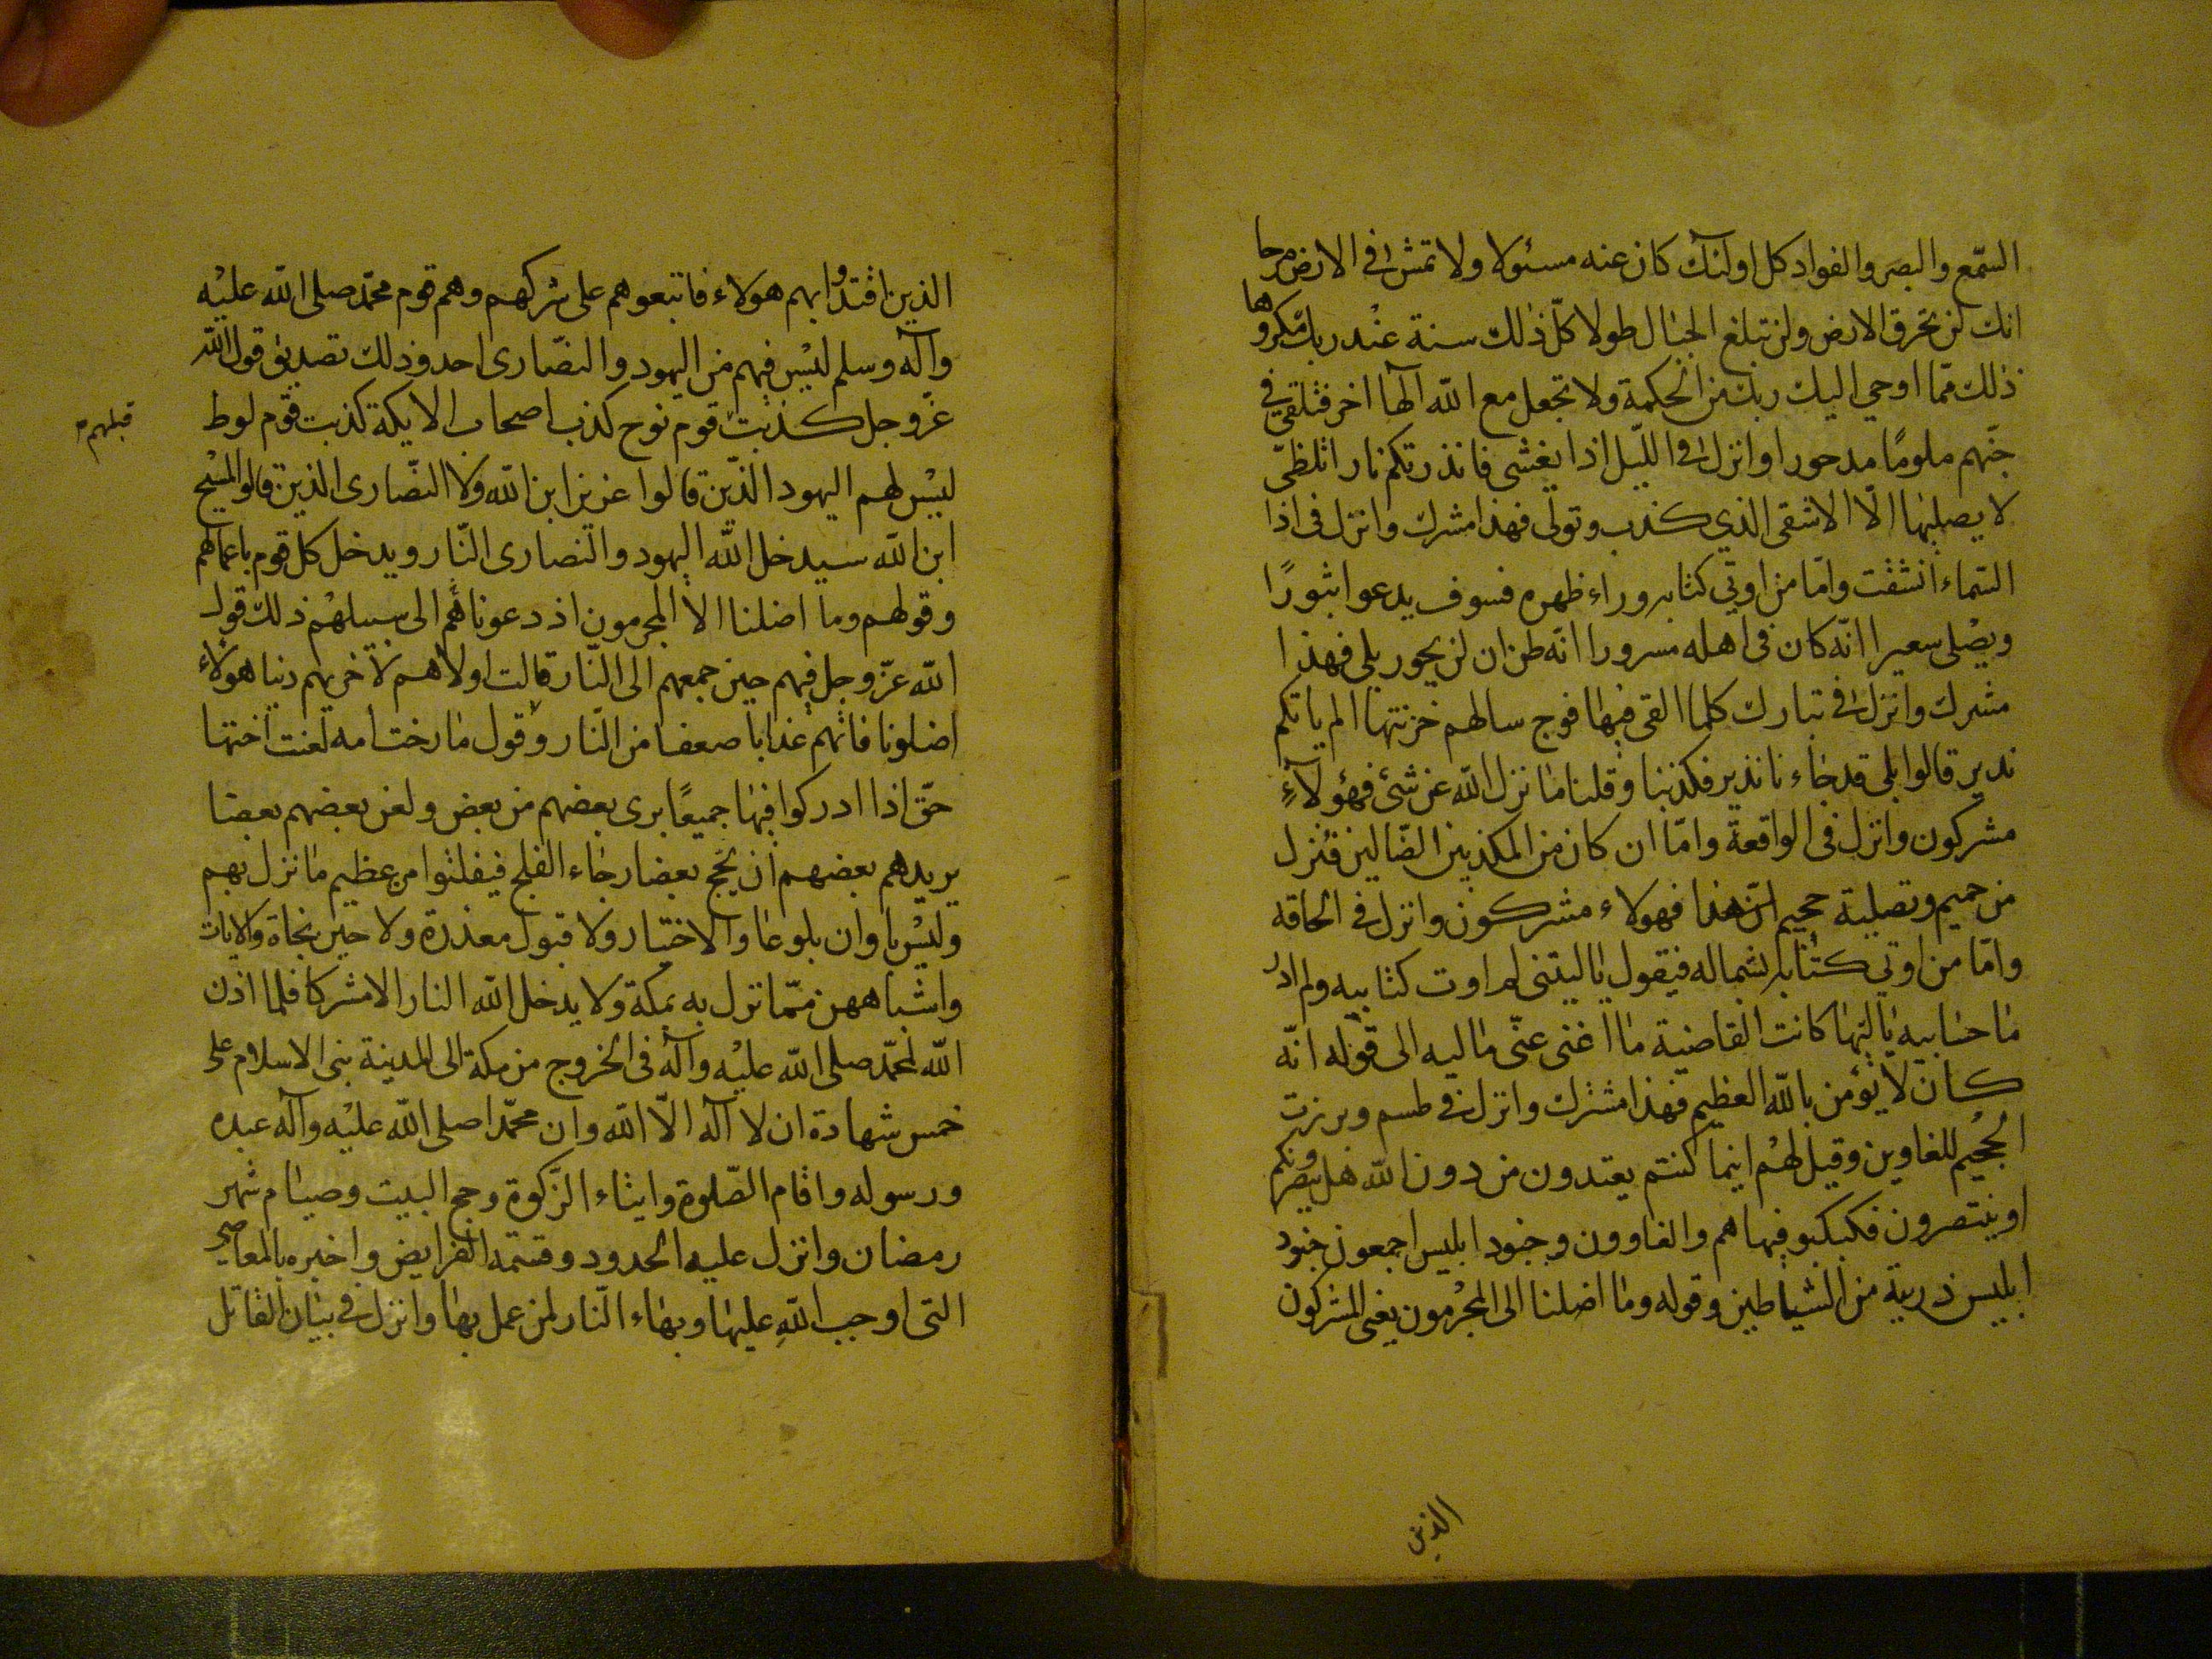 السّمع والبصر والفواد كل اولئك كان عنه مسئولا ولا تمش فى الارض مرحا
انك لن تخرق الارض ولن تبلغ الجبال طولا كلّ ذلك سنة عند ربك مكروها
ذلك ممّا اوحي اليك ربك من الحكمة ولا تجعل مع الله الها اخر فتلقى في
جهنم ملومًا مدحورا وانزل فى والليل اذا يغشى فانذرتكم نارا تلظّى
لا يصليها الّا الاشقى الذي كذب وتولى فهذا مشرك وانزل فى اذا
السّماء انشقت وامّا من اوتي كتابه وراء ظهره فسوف يدعوا ثبورًا
ويصلى سعيرا انّه كان فى اهله مسرورا انّه ظن ان لن يحور بلى فهذا
مشرك وانزل فى تبارك كلما القى فيها فوج سالهم خزنتها الم ياتكم
نذير قالوا بلى قد جاءنا نذير فكذبنا وقلنا ما نزل الله من شئ فهؤلاءِ
مشركون وانزل فى الواقعة وامّا ان كان من المكذبين الضّالين فنزل
من حميم وتصلية جحيم انّ هذا فهولاء مشركون وانزل فى الحاقه
وامّا من اوتي كتابه بشماله فيقول يا ليتنى لم اوت كتابيه ولم ادر
ما حسابيه يا ليتها كانت القاضية ما اغنى عنّى ماليه الى قوله انّه
كان لا يؤمن بالله العظيم فهذا مشرك وانزل فى طسم وبرزت
الجحيم للغاوين وقيل لهم اينما كنتم يعتدون من دون الله هل ينصرونكم
او ينتصرون فكبكبو فيها هم والغاوون وجنود ابليس اجمعون جنود
ابليس ذرية من الشياطين وقوله وما اضلنا الى المجرمون يعنى المشركون
الذين
الذين اقتدوا بهم هولاء فاتبعوهم على شركهم وهم قوم محمّد صلى الله عليه
وآله وسلم ليس فيهم من اليهود والنصّارى احد وذلك تصديق قول الله
عزّوجل كذبت قوم نوح كذب اصحاب الايكة كذبت قوم لوط
قبلهم
ليس لهم اليهود الذّين قالوا عزيز ابن الله ولا النصّارى الذين قالوا المسيح
ابن الله سيدخل الله اليهود والنصارى النّار ويدخل كل قوم باعمالهم
وقولهم وما اضلنا الا المجرمون اذ دعوناهم الى سبيلهم ذلك قول
الله عزّوجل فيهم حين جمعهم الى النّار قالت اولاهم لاخريهم ربنا هولاء
اضلونا فاتهم عذابا صعفا من النّار وقول ما دخت امه لعنت اختها
حتّى اذا ادركوا فيها جميعًا برى بعضهم من بعض ولعن بعضهم بعضا
يريدهم بعضهم ان يحج بعضا رجاء الفلج فيفلتوا من عظيم ما نزل بهم
وليس باوان بلوعا والاختيار ولا قبول معذرة ولا حين نجاة والايات
واشباههن ممّا نزل به بمكة ولا يدخل الله النار الا مشركا فلما اذن
الله لمحمّد صلى الله عليه وآله فى الخروج من مكة الى المدينة بنى الاسلام على
خمس شهادة ان لا اله الّا الله وان محمّدا صلى الله عليه وآله عبده
ورسوله واقام الصّلوة وايتاء الزّكوة وحج البيت وصيام شهر
رمضان وانزل عليه الحدود وقسمة الفرايض واخبره بالمعاصى
التى اوجب الله عليها وبهاء النّار لمن عمل بها وانزل فى بيان القاتل